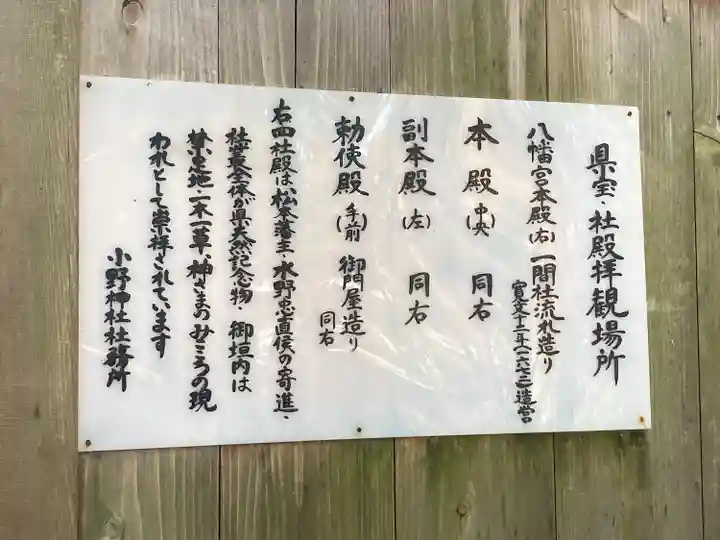 県宝・社殿拝観場所
八幡宮本殿(右)一間社流れ造り
寛文十二年(一六七二)造営
本殿(中央) 同右
副本殿(左) 同右
勅使殿(手前) 御門屋造り
同右
右四社殿は松本藩主・水野忠直侯の寄進・
社叢全体が県天然記念物・御垣内は
禁足地一木一草、神さまのみこころの現
われとして崇拝されています
小野神社社務所